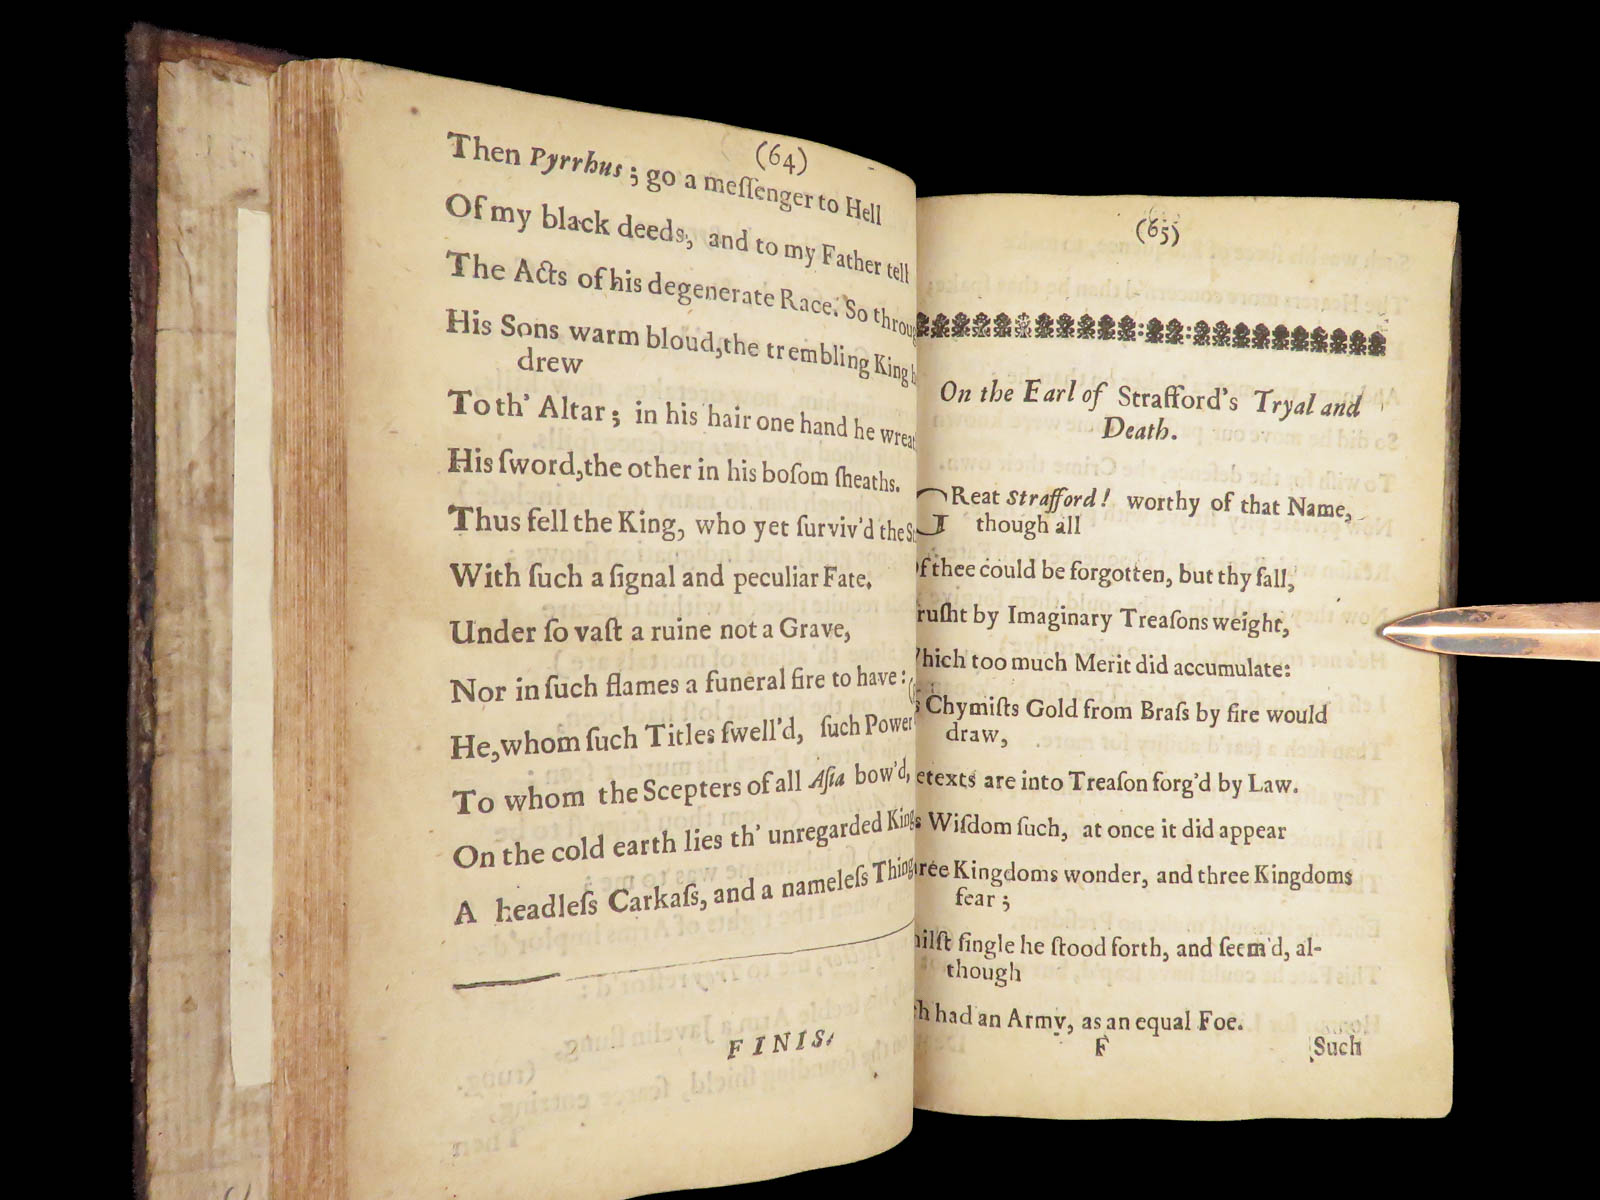 (64)
Then Pyrrhus ; go a meſſenger to Hell
Of my black deeds, and to my Father tell
The Acts of his degenerate Race. So throug
His Sons warm bloud,the trembling King h
drew
To th' Altar ; in his hair one hand he wreat
His ſword,the other in his boſom ſheaths.
Thus fell the King, who yet ſurviv'd the S
With ſuch a ſignal and peculiar Fate,
Under ſo vaſt a ruine not a Grave,
Nor in ſuch flames a funeral fire to have :
He,whom ſuch Titles ſwell'd, ſuch Power
To whom the Scepters of all Aſia bow'd,
On the cold earth lies th' unregarded King
A headleſs Carkaſs, and a nameleſs Thing
FINIS.
(65)
On the Earl of Strafford's Tryal and
Death.
GReat Strafford! worthy of that Name,
though all
Of thee could be forgotten, but thy fall,
ruſht by Imaginary Treaſons weight,
Which too much Merit did accumulate:
s Chymiſts Gold from Braſs by fire would
draw,
etexts are into Treaſon forg'd by Law.
s Wiſdom ſuch, at once it did appear
ree Kingdoms wonder, and three Kingdoms
fear ;
hilſt ſingle he ſtood forth, and ſeem'd, al-
though
h had an Army, as an equal Foe.
F Such